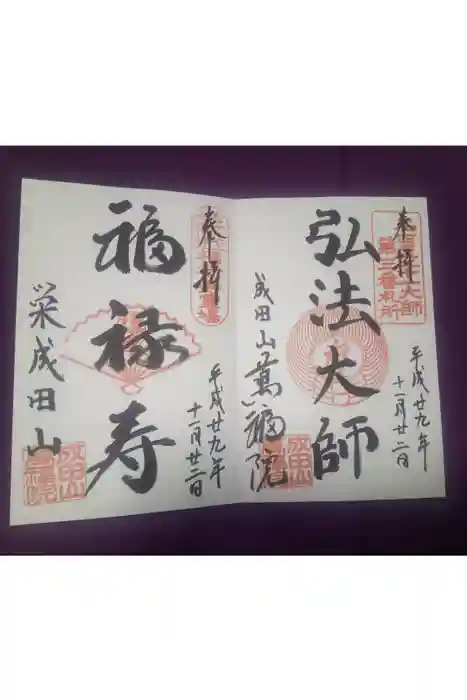 奉拝
弘法大師
平成廿九年
十一月廿二日
成田山萬福院
奉拝
福禄寿
平成廿九年
十一月廿二日
栄成田山